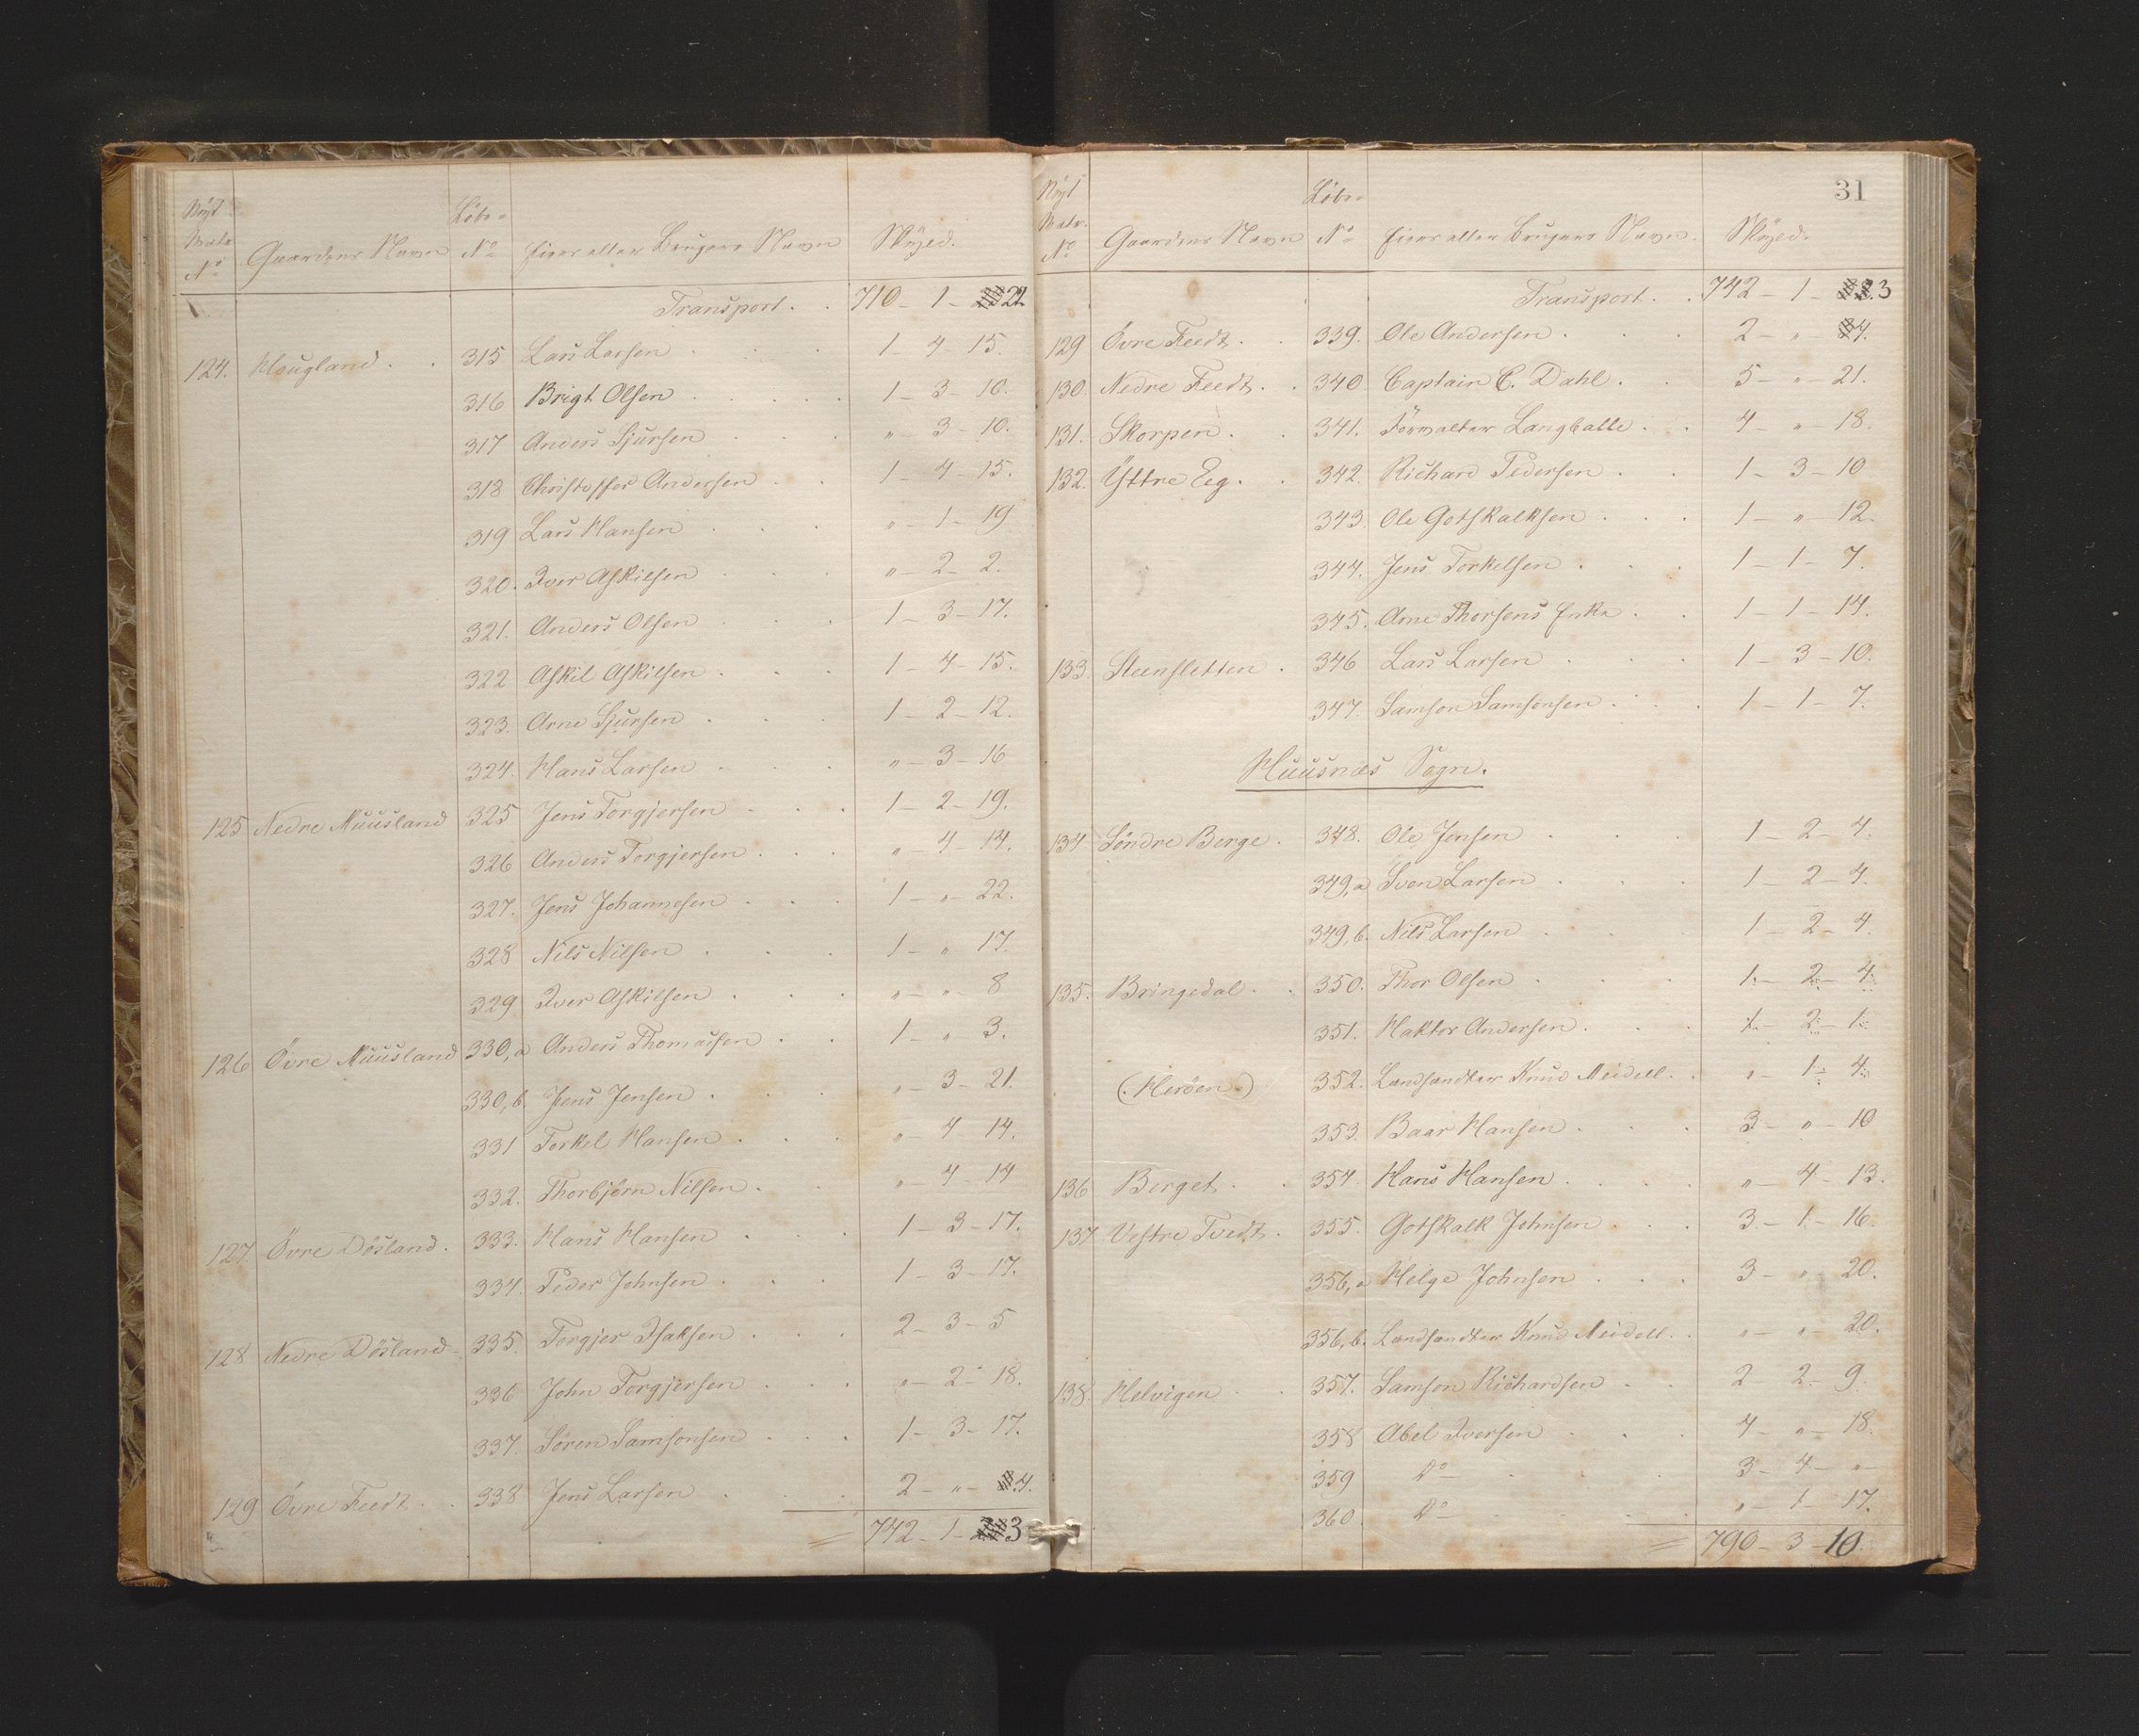 Nyt Matr. No Gaardens Navn Löbe- No Eier eller Brugers Navn Skyld.
Transport . . 710 - 1 - 22
124. Hougland . . 315 Lars Larsen . . . 1 - 4 - 15.
316 Brigt Olsen . . . . 1 - 3 - 10.
317 Anders Sjursen . . . " - 3 - 10.
318 Christoffer Andersen . . 1 - 4 - 15.
319 Lars Hansen . . . " - 1 - 19
320. Iver Askilsen . . . " - 2 - 2.
321. Anders Olsen . . . 1 - 3 - 17.
322 Askil Askilsen . . . 1 - 4 - 15.
323. Arne Sjursen . . . 1 - 2 - 12.
324. Hans Larsen . . . " - 3 - 16
125 Nedre Muusland 325 Jens Torgjersen . . . 1 - 2 - 19.
326 Anders Torgjersen . . . " - 4 - 14.
327. Jens Johannesen . . . 1 - " - 22.
328 Nils Nilsen . . . 1 - " 17.
329 Iver Askilsen . . . " - " - 8
126 Övre Muusland 330,a Anders Thomassen . . 1 - " 3.
330,b. Jens Jensen . . . " - 3 - 21.
331 Torkel Hansen . . . " - 4 - 14.
332. Thorbjörn Nilsen . . " - 4 - 14
127 Övre Dösland . 333. Hans Hansen . . . 1 - 3 - 17.
334. Peder Johnsen . . . 1 - 3 - 17.
128 Nedre Dösland - 335. Torgjer Isaksen . . . 2 - 3 - 5
336 John Torgjersen . . . " - 2 - 18.
337. Sören Samsonsen . . . 1 - 3 - 17.
129 Övre Feedt . . 338 Jens Larsen . . . 2 - " - 4.
= 742 - 1 - 3
31
Nyt Matr. No Gaardens Navn Löbe- No Eier eller Brugers Navn. Skyld.
Transport . . 742 - 1 - 3
129 Övre Feedt . . 339. Ole Andersen . . . 2 - " - 4.
130. Nedre Feedt . . 340 Captain C. Dahl . . 5 - " - 21.
131. Skorpen . . 341. Forvalter Langballe . . 4 - " - 18.
132. Yttre Eeg . . 342. Richard Pedersen . . 1 - 3 - 10
343. Ole Gotskalksen . . . 1 - " - 12.
344. Jens Torkelsen . . . 1 - 1 - 7.
345. Arne Thorsens Enke . . 1 - 1 - 14.
133. Steensletten . 346 Lars Larsen . . . 1 - 3 - 10.
347. Samson Samsonsen . . . 1 - 1 - 7.
Huusnæs Sogn.
134 Söndre Berge . 348. Ole Jensen . . . 1 - 2 - 4.
349,a Sven Larsen . . . 1 - 2 - 4.
349,b. Nils Larsen . . . 1 - 2 - 4.
135. Bringedal . . 350. Thor Olsen . . . 1 - 2 - 4.
351. Haktor Andersen . . . 1 - 2 - 1.
(Heröen.) 352. Landhandler Knud Meidell . . " - 1 - 4.
353. Baar Hansen . . . 3 - " - 10
136 Berget . . 354. Hans Hansen . . . . " - 4 - 13.
137 Vestre Tvedt . 355. Gotskalk Johnsen . . . 3 - 1 - 16.
356,a Helge Johnsen . . . 3 - " 20.
356,b. Landhandler Knud Meidell . . " - " - 20.
138. Helvigen . . 357. Samson Richardsen . . 2 2 - 9
358 Abel Iversen . . . 4 - " - 18.
359 Do - . . . 3 - 4 - " -
360. Do - . . . . " - 1 - 17.
= 790 - 3 - 10.